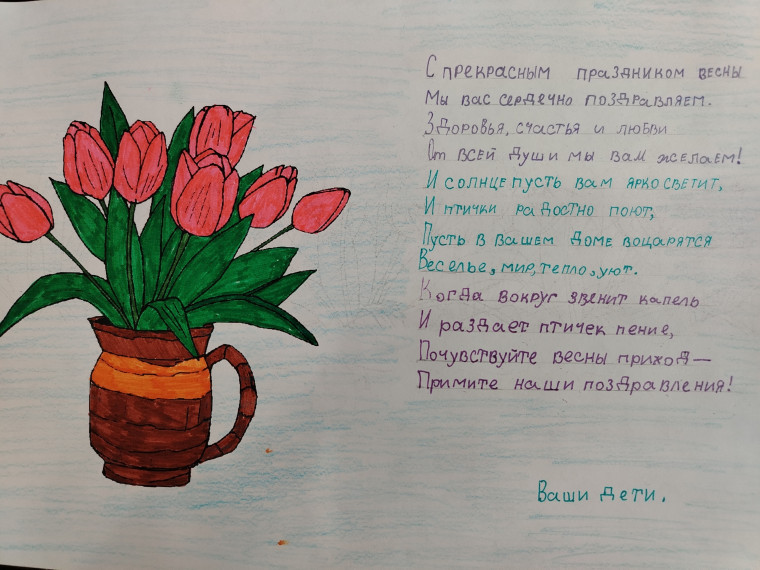 С прекрасным праздником весны
Мы вас сердечно поздравляем.
Здоровья, счастья и любви
От всей души мы вам желаем!
И солнце пусть вам ярко светит,
И птички радостно поют,
Пусть в вашем доме воцарятся
Веселье, мир, тепло, уют.
Когда вокруг звенит капель
И раздает птичек пение,
Почувствуйте весны приход—
Примите наши поздравления!
Ваши дети.